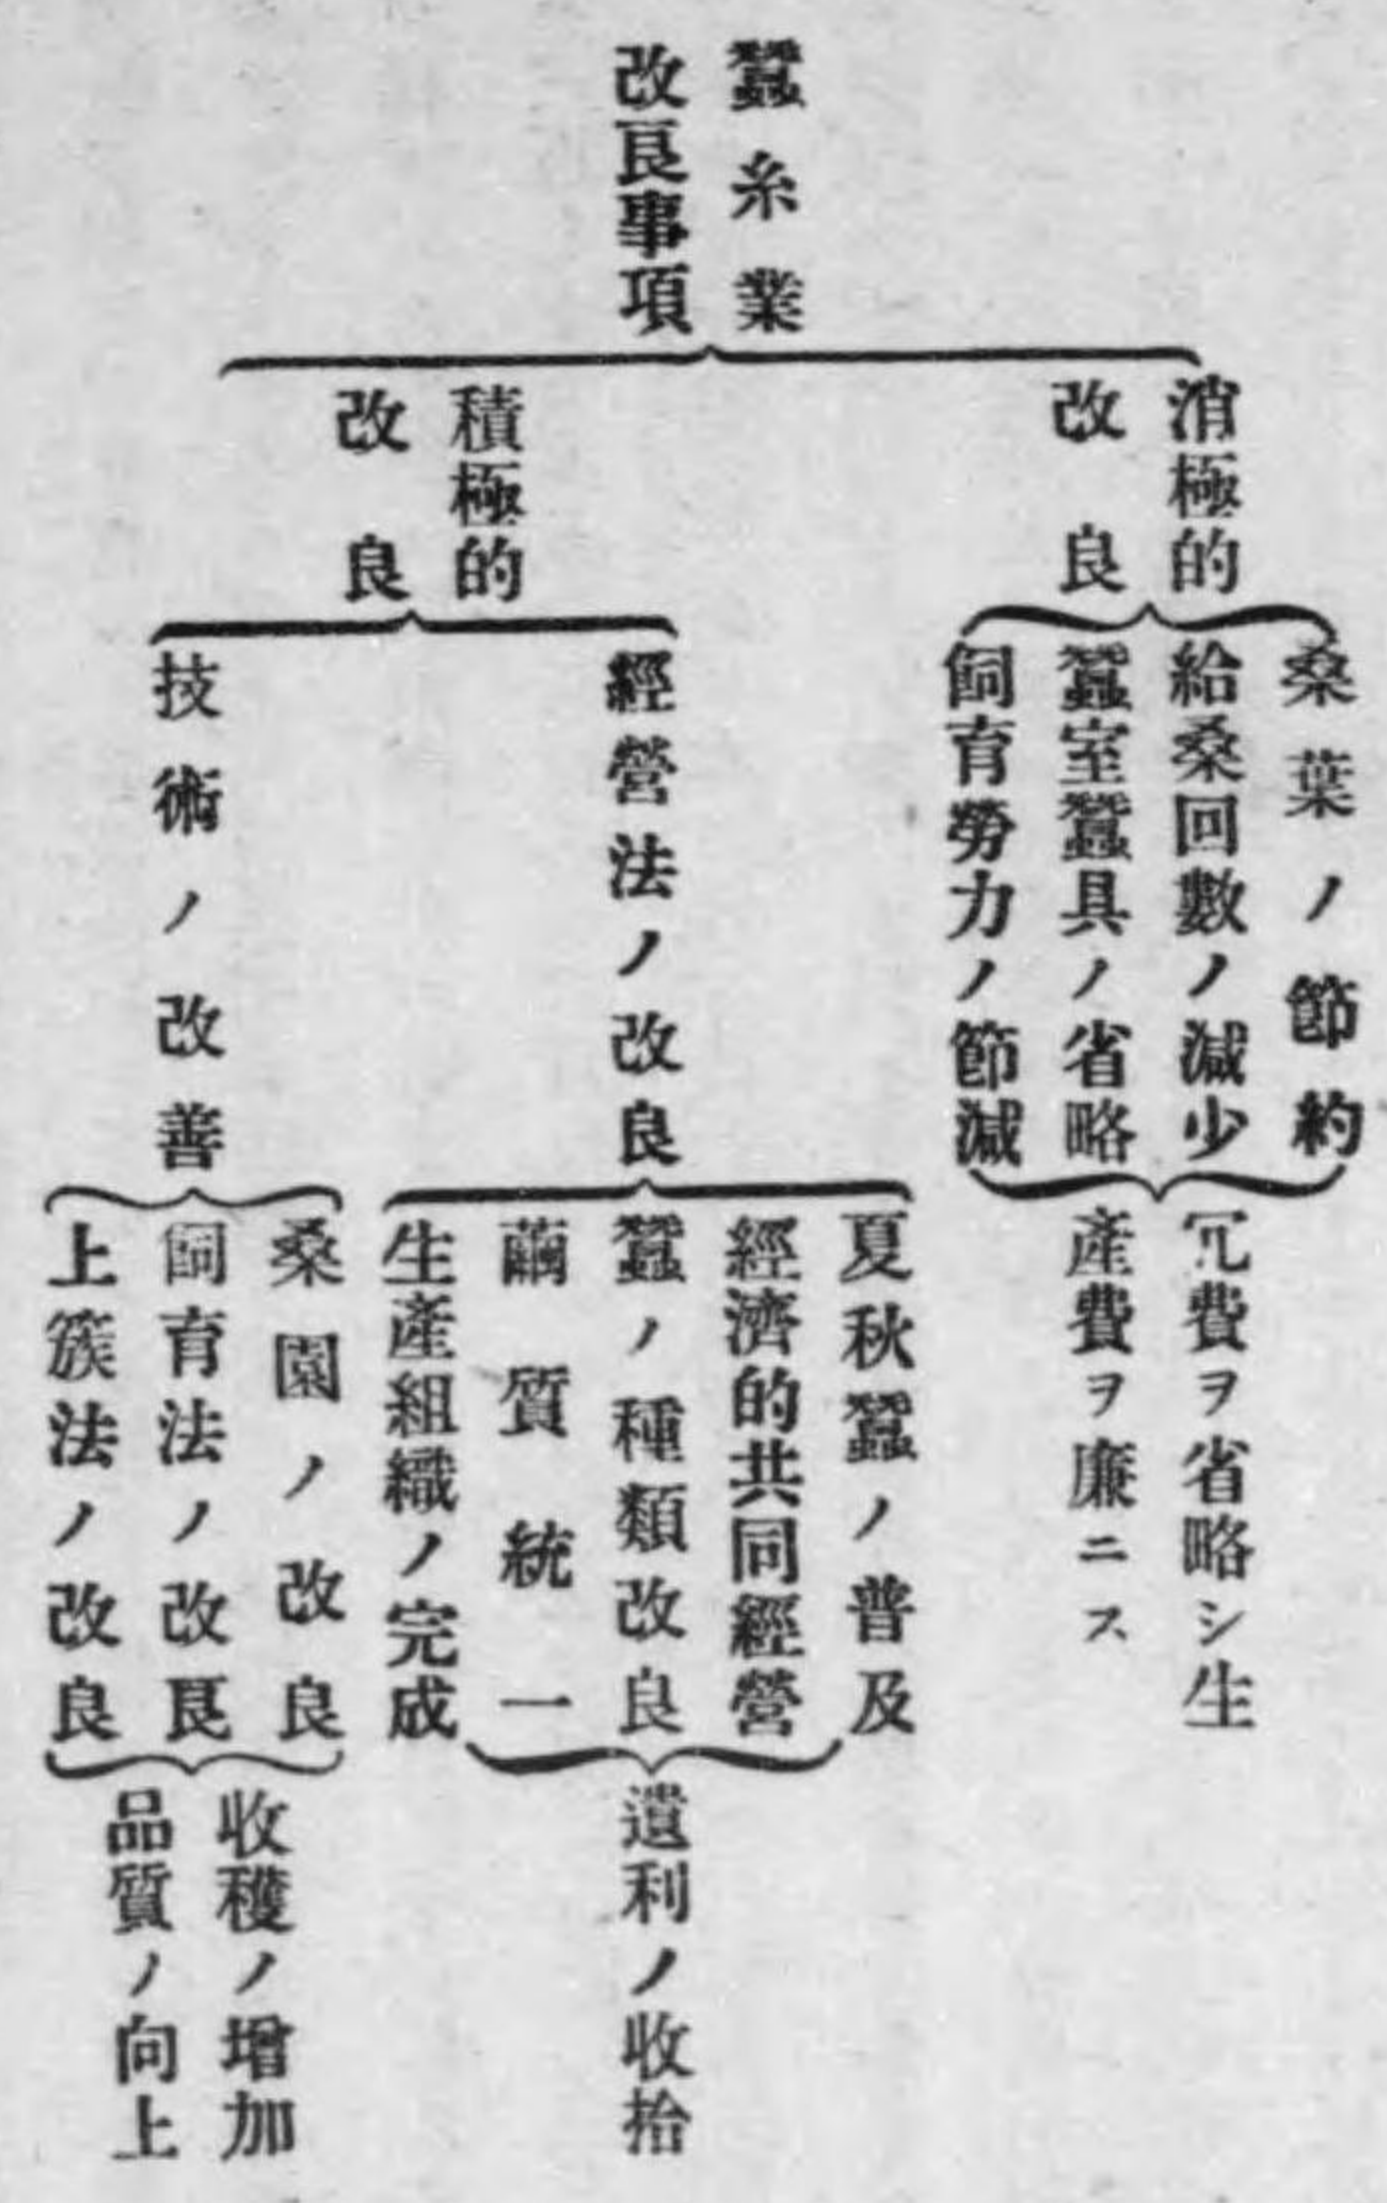 蠶糸業
改良事項
消極的
改良
桑葉ノ節約
給桑回數ノ減少
蠶室蠶具ノ省略
飼育勞力ノ節減
冗費ヲ省略シ生
產費ヲ廉ニス
積極的
改良
經營法ノ改良
夏秋蠶ノ普及
經濟的共同經營
蠶ノ種類改良
繭質統一
生產組織ノ完成
遺利ノ收拾
技術ノ改善
桑園ノ改良
飼育法ノ改良
上簇法ノ改良
收穫ノ增加
品質ノ向上